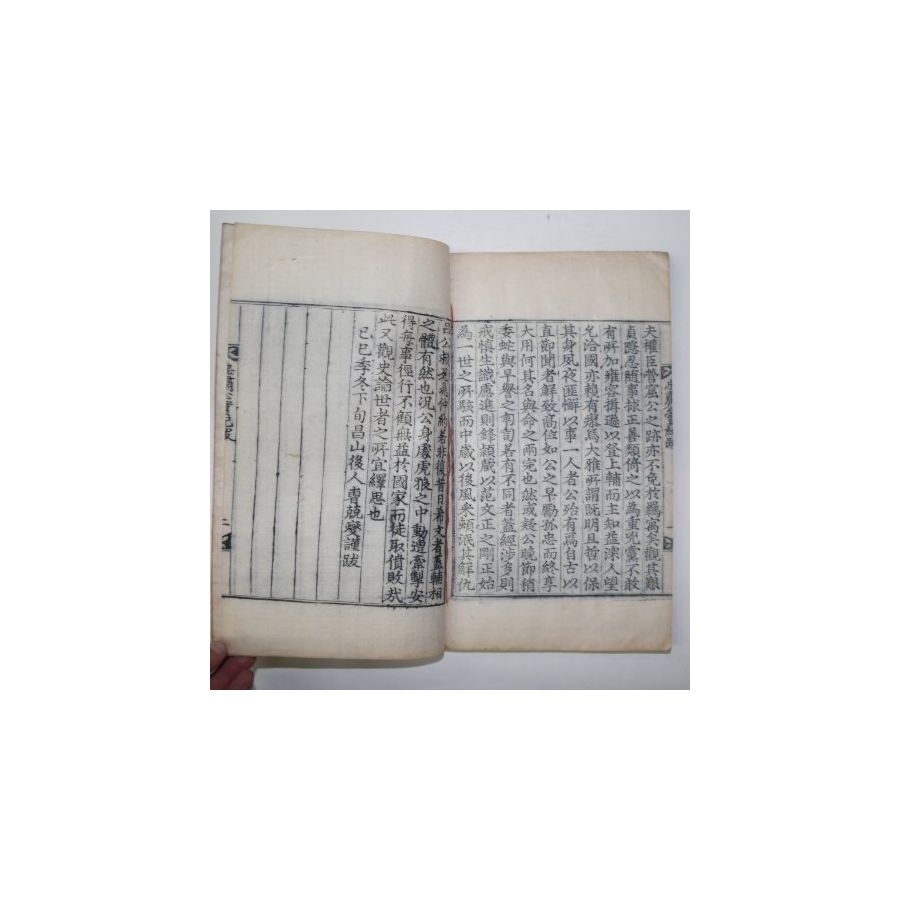 夫權臣營窟公之跡亦不免於羈寓矣觀其艱
貞隱忍隨事採正善類倚之以爲重兇黨不敢
有所加雍容揖遜以登上輔而主知益深人望
允洽國亦賴有爲大雅所謂旣明且哲以保
其身夙夜匪懈以事一人者公殆有焉自古以
直節聞者鮮致高位如公之早勵孤忠而終享
大用何其名與命之兩完也然或疑公晚節稍
委蛇與早譽之有不同者蓋經涉多則
戒愼生識慮進則鋒穎藏以范文正之剛正始
爲一世之所駭而中歲以後風采頓泯其解仇
呂公仲約若非復昔日希文者蓋輔相
之體有然也況公身處虎狼之中動遭牽掣安
得每事徑行不顧無益於國家而徒取僨敗哉
此又觀史論世者之所宜繹思也
己巳季冬下旬昌山後人曺兢燮謹跋
二